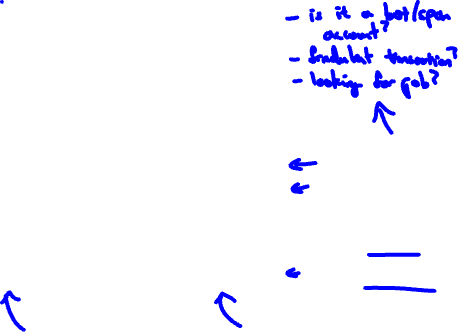 - is it a bot/spam
account?
- fraudulent transaction?
- looking for job?